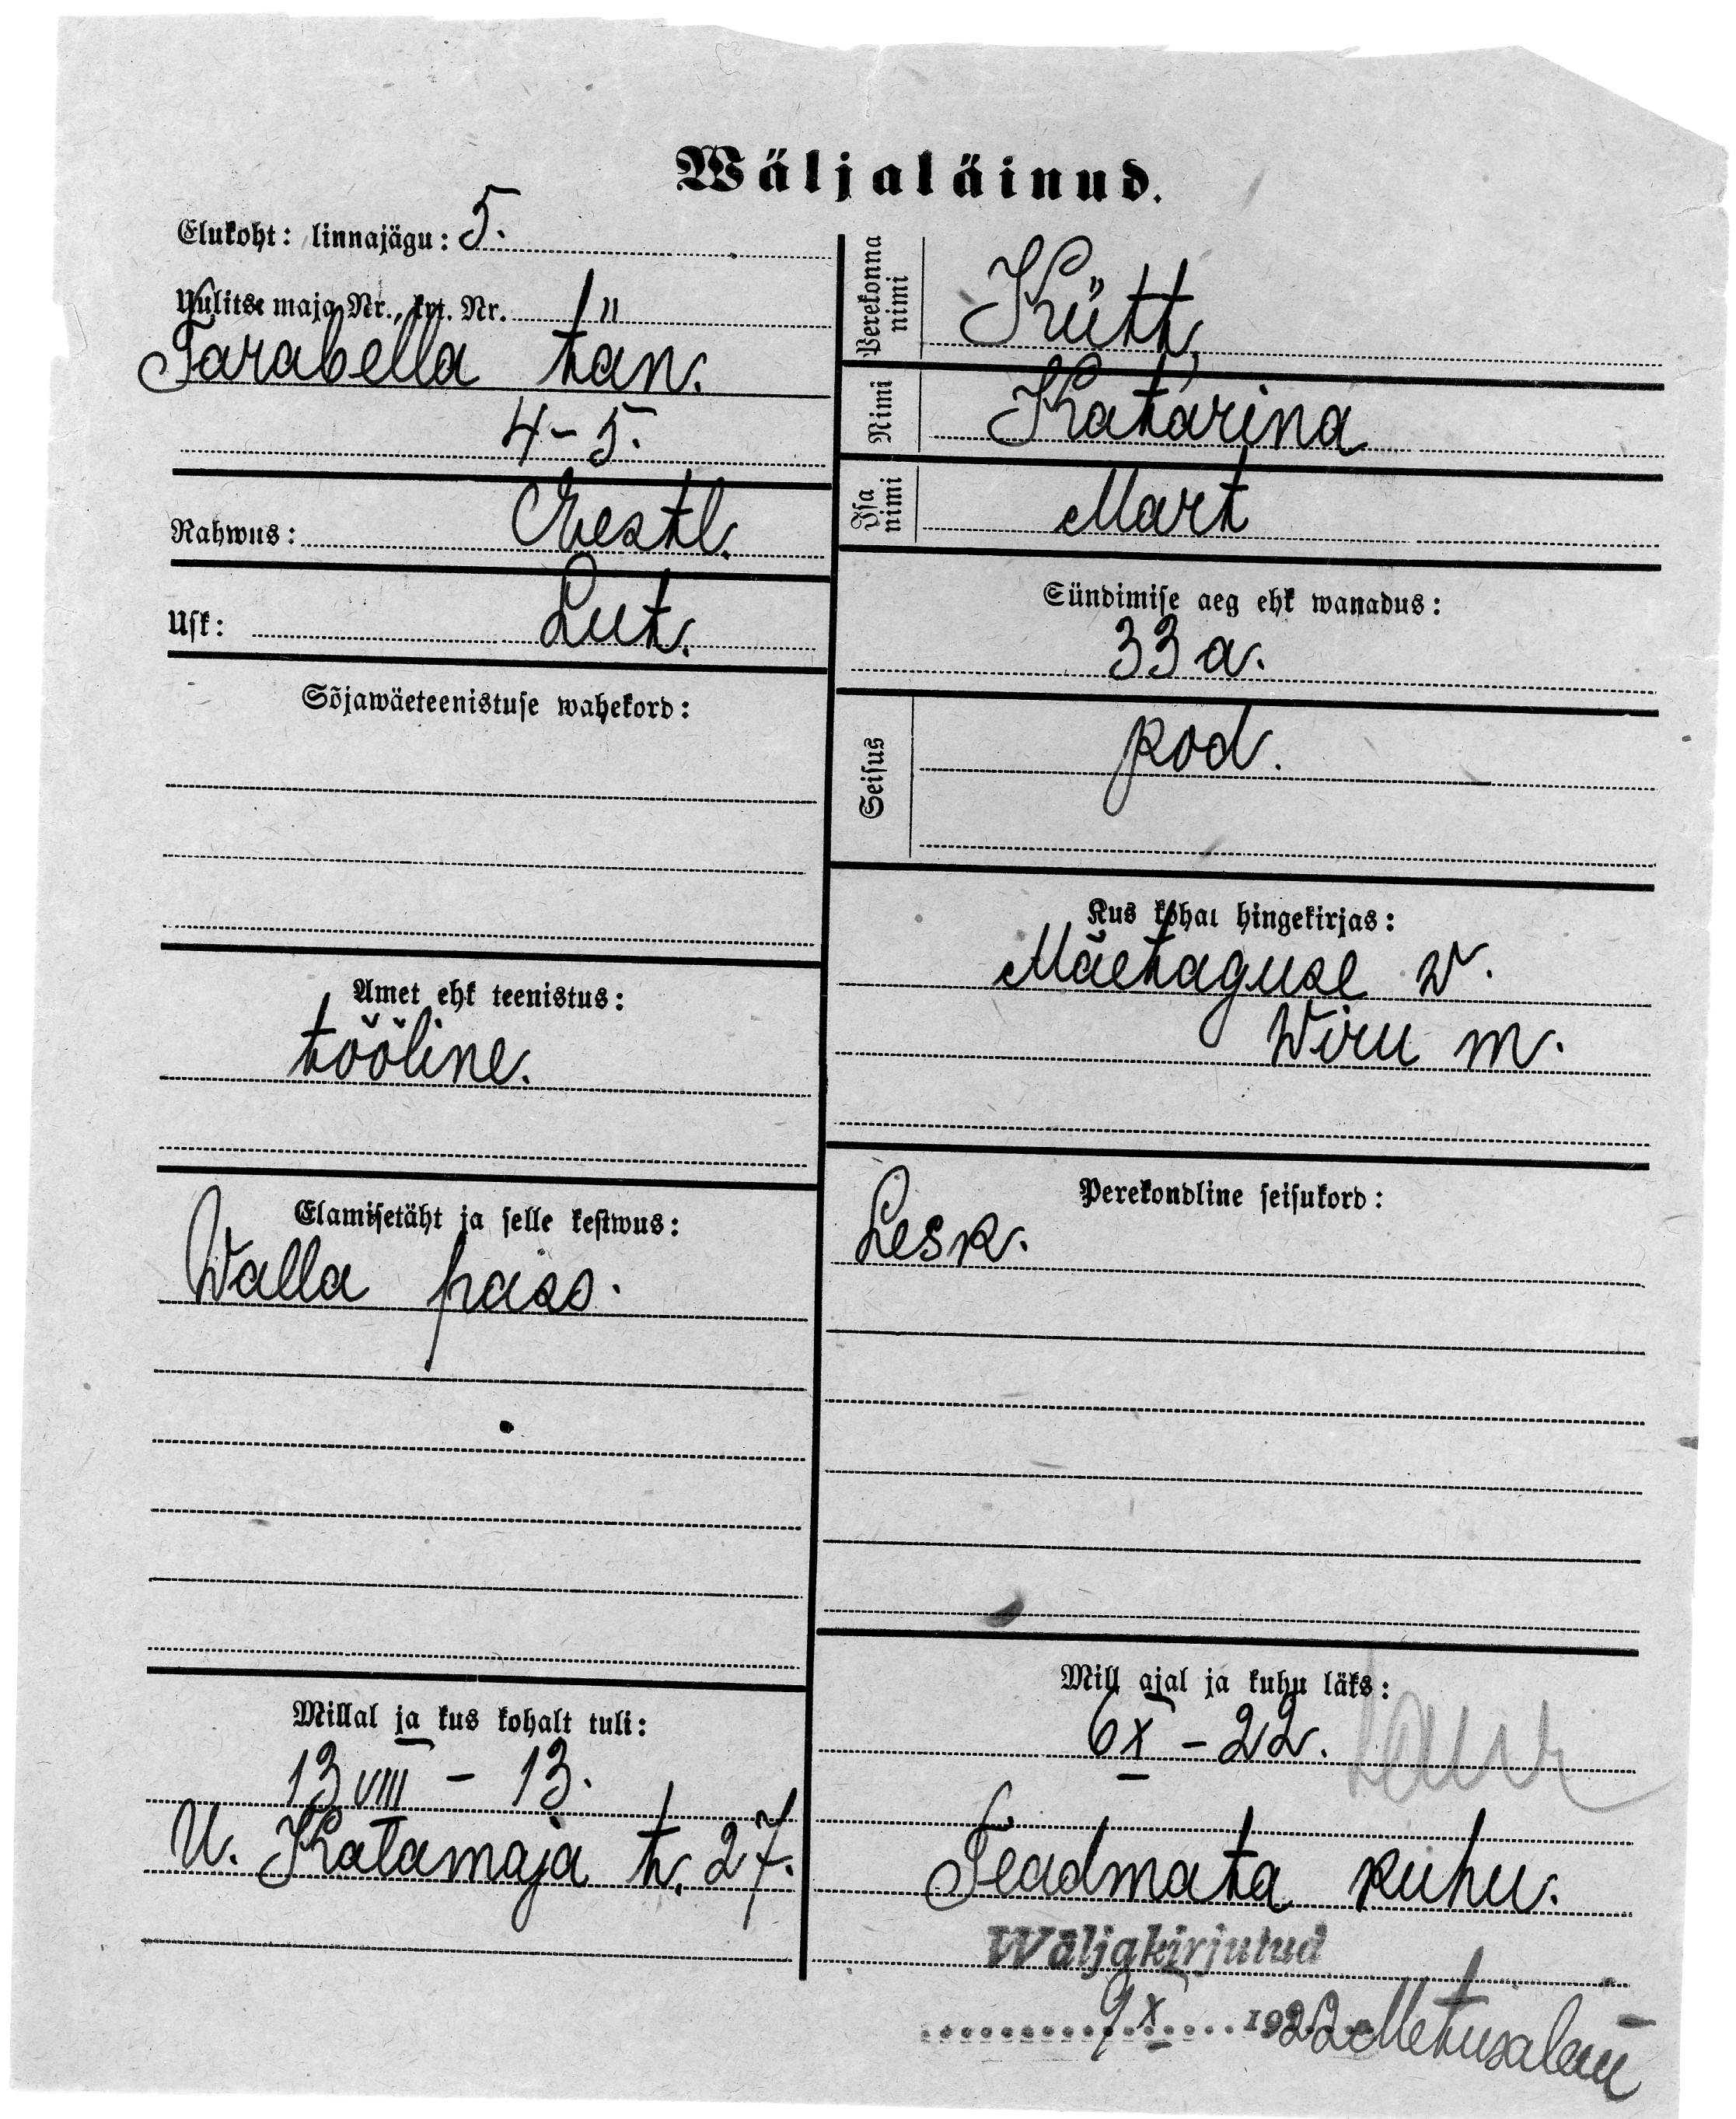 Wäljaläinud.
Elukoht: linnajägu: 5.
Uulitse maja Nr., krt. Nr. "
Tarabella tän.
4-5.
Rahwus: Eestl.
Usk: Lut.
Sõjawäeteenistuse wahekord:
Amet ehk teenistus:
tööline.
Elamisetäht ja selle kestwus:
Walla pass.
Millal ja kus kohalt tuli:
13 VIII - 13.
U. Kalamaja t. 27.
Perekonna nimi
Kütt,
Nimi
Katarina
Isa nimi
Mart
Sündimise aeg ehk wanadus:
33 a.
Seisus
kod.
Kus kohal hingekirjas:
Mäetaguse w.
Wiru m.
Perekondline seisukord:
Lesk.
Mill ajal ja kuhu läks:
6 X - 22.
Teadmata kuhu.
Wäljakirjutud
9 X 1922